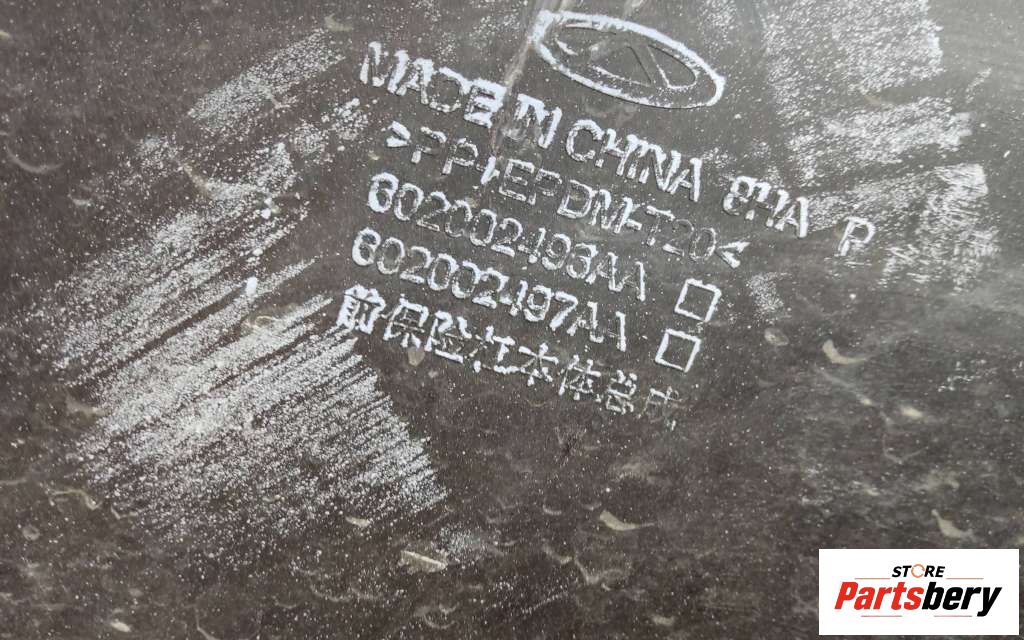 MADE IN CHINA 8HA P
>PP+EPDM-T20<
602002496AA
602002497AA
前保险杠本体总成
STORE
Partsbery